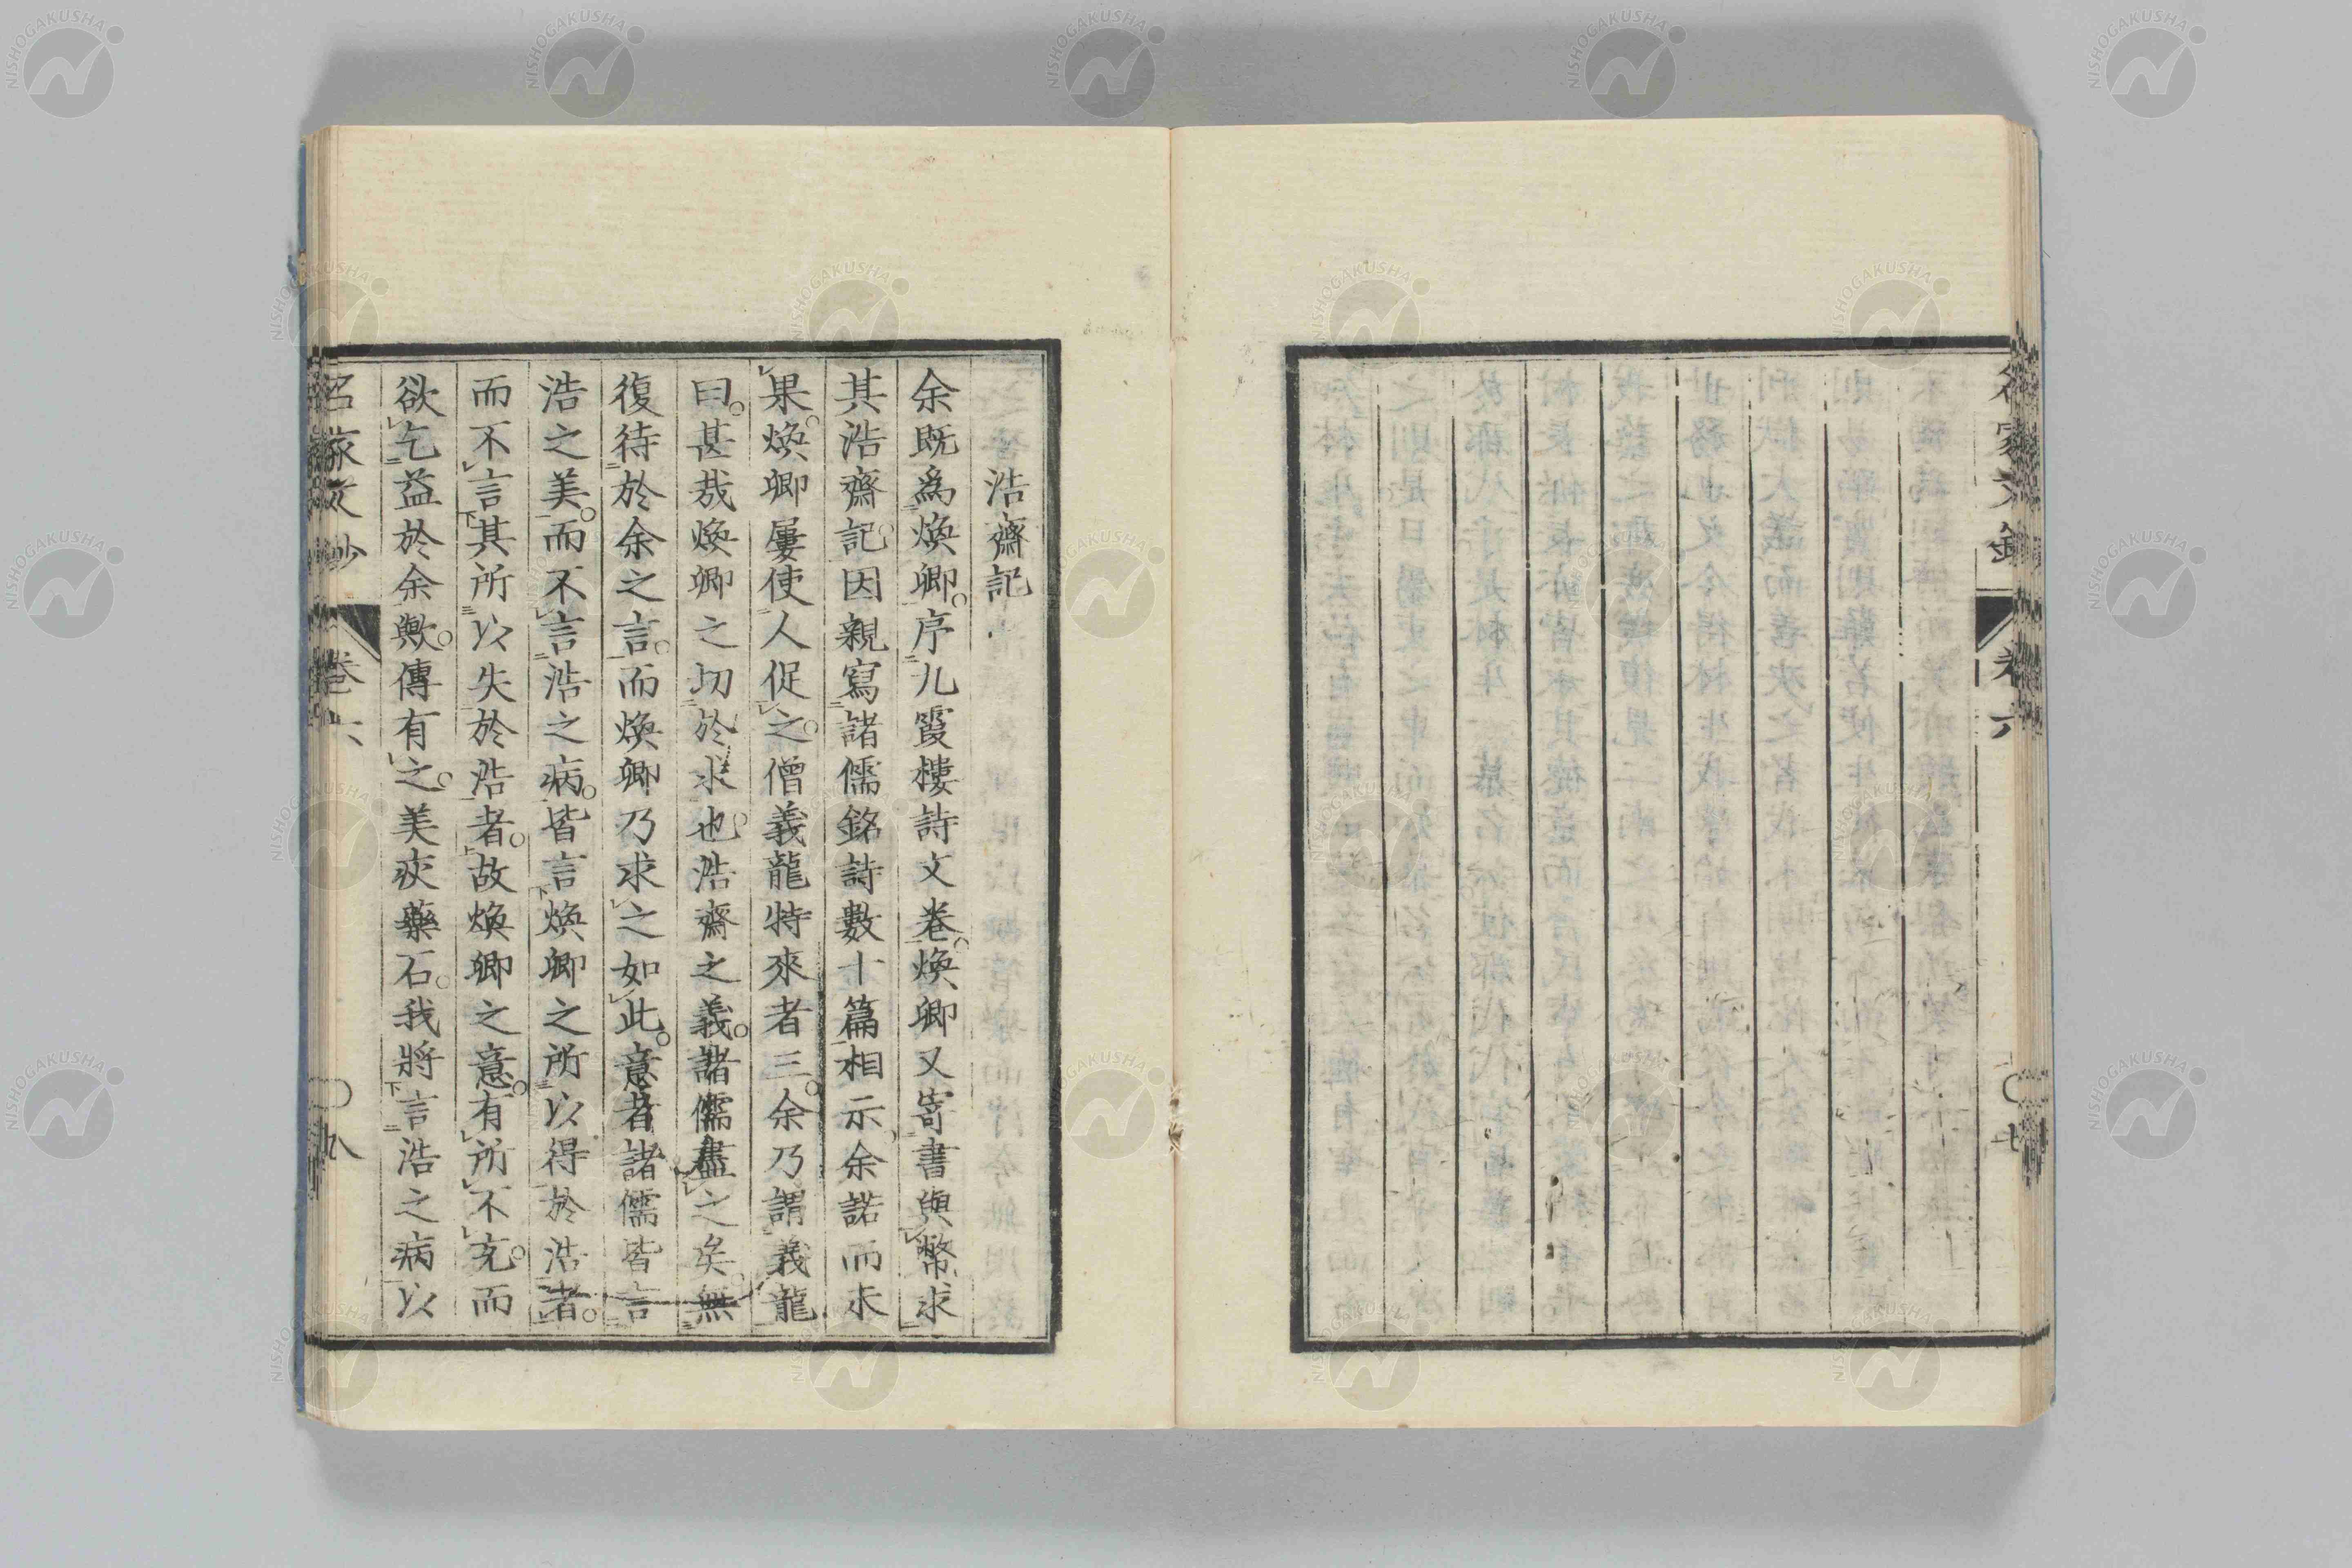 名家文鈔
卷六
浩齋記
余既爲煥卿序九霞樓詩文卷煥卿又寄書與幣求
其浩齋記因親寫諸儒銘詩數十篇相示余諾而未
果煥卿屢使人促之僧義龍特來者三余乃謂義龍
曰甚哉煥卿之切於求也浩齋之義諸儒盡之矣無
復待於余之言而煥卿乃求之如此意者諸儒皆言
浩之美而不言浩之病皆言煥卿之所以得於浩者
而不言其所以失於浩者故煥卿之意有所不充而
欲乞益於余歟傳有之美疢藥石我將言浩之病以
名家文鈔
卷六
八
NISHOGAKUSHA